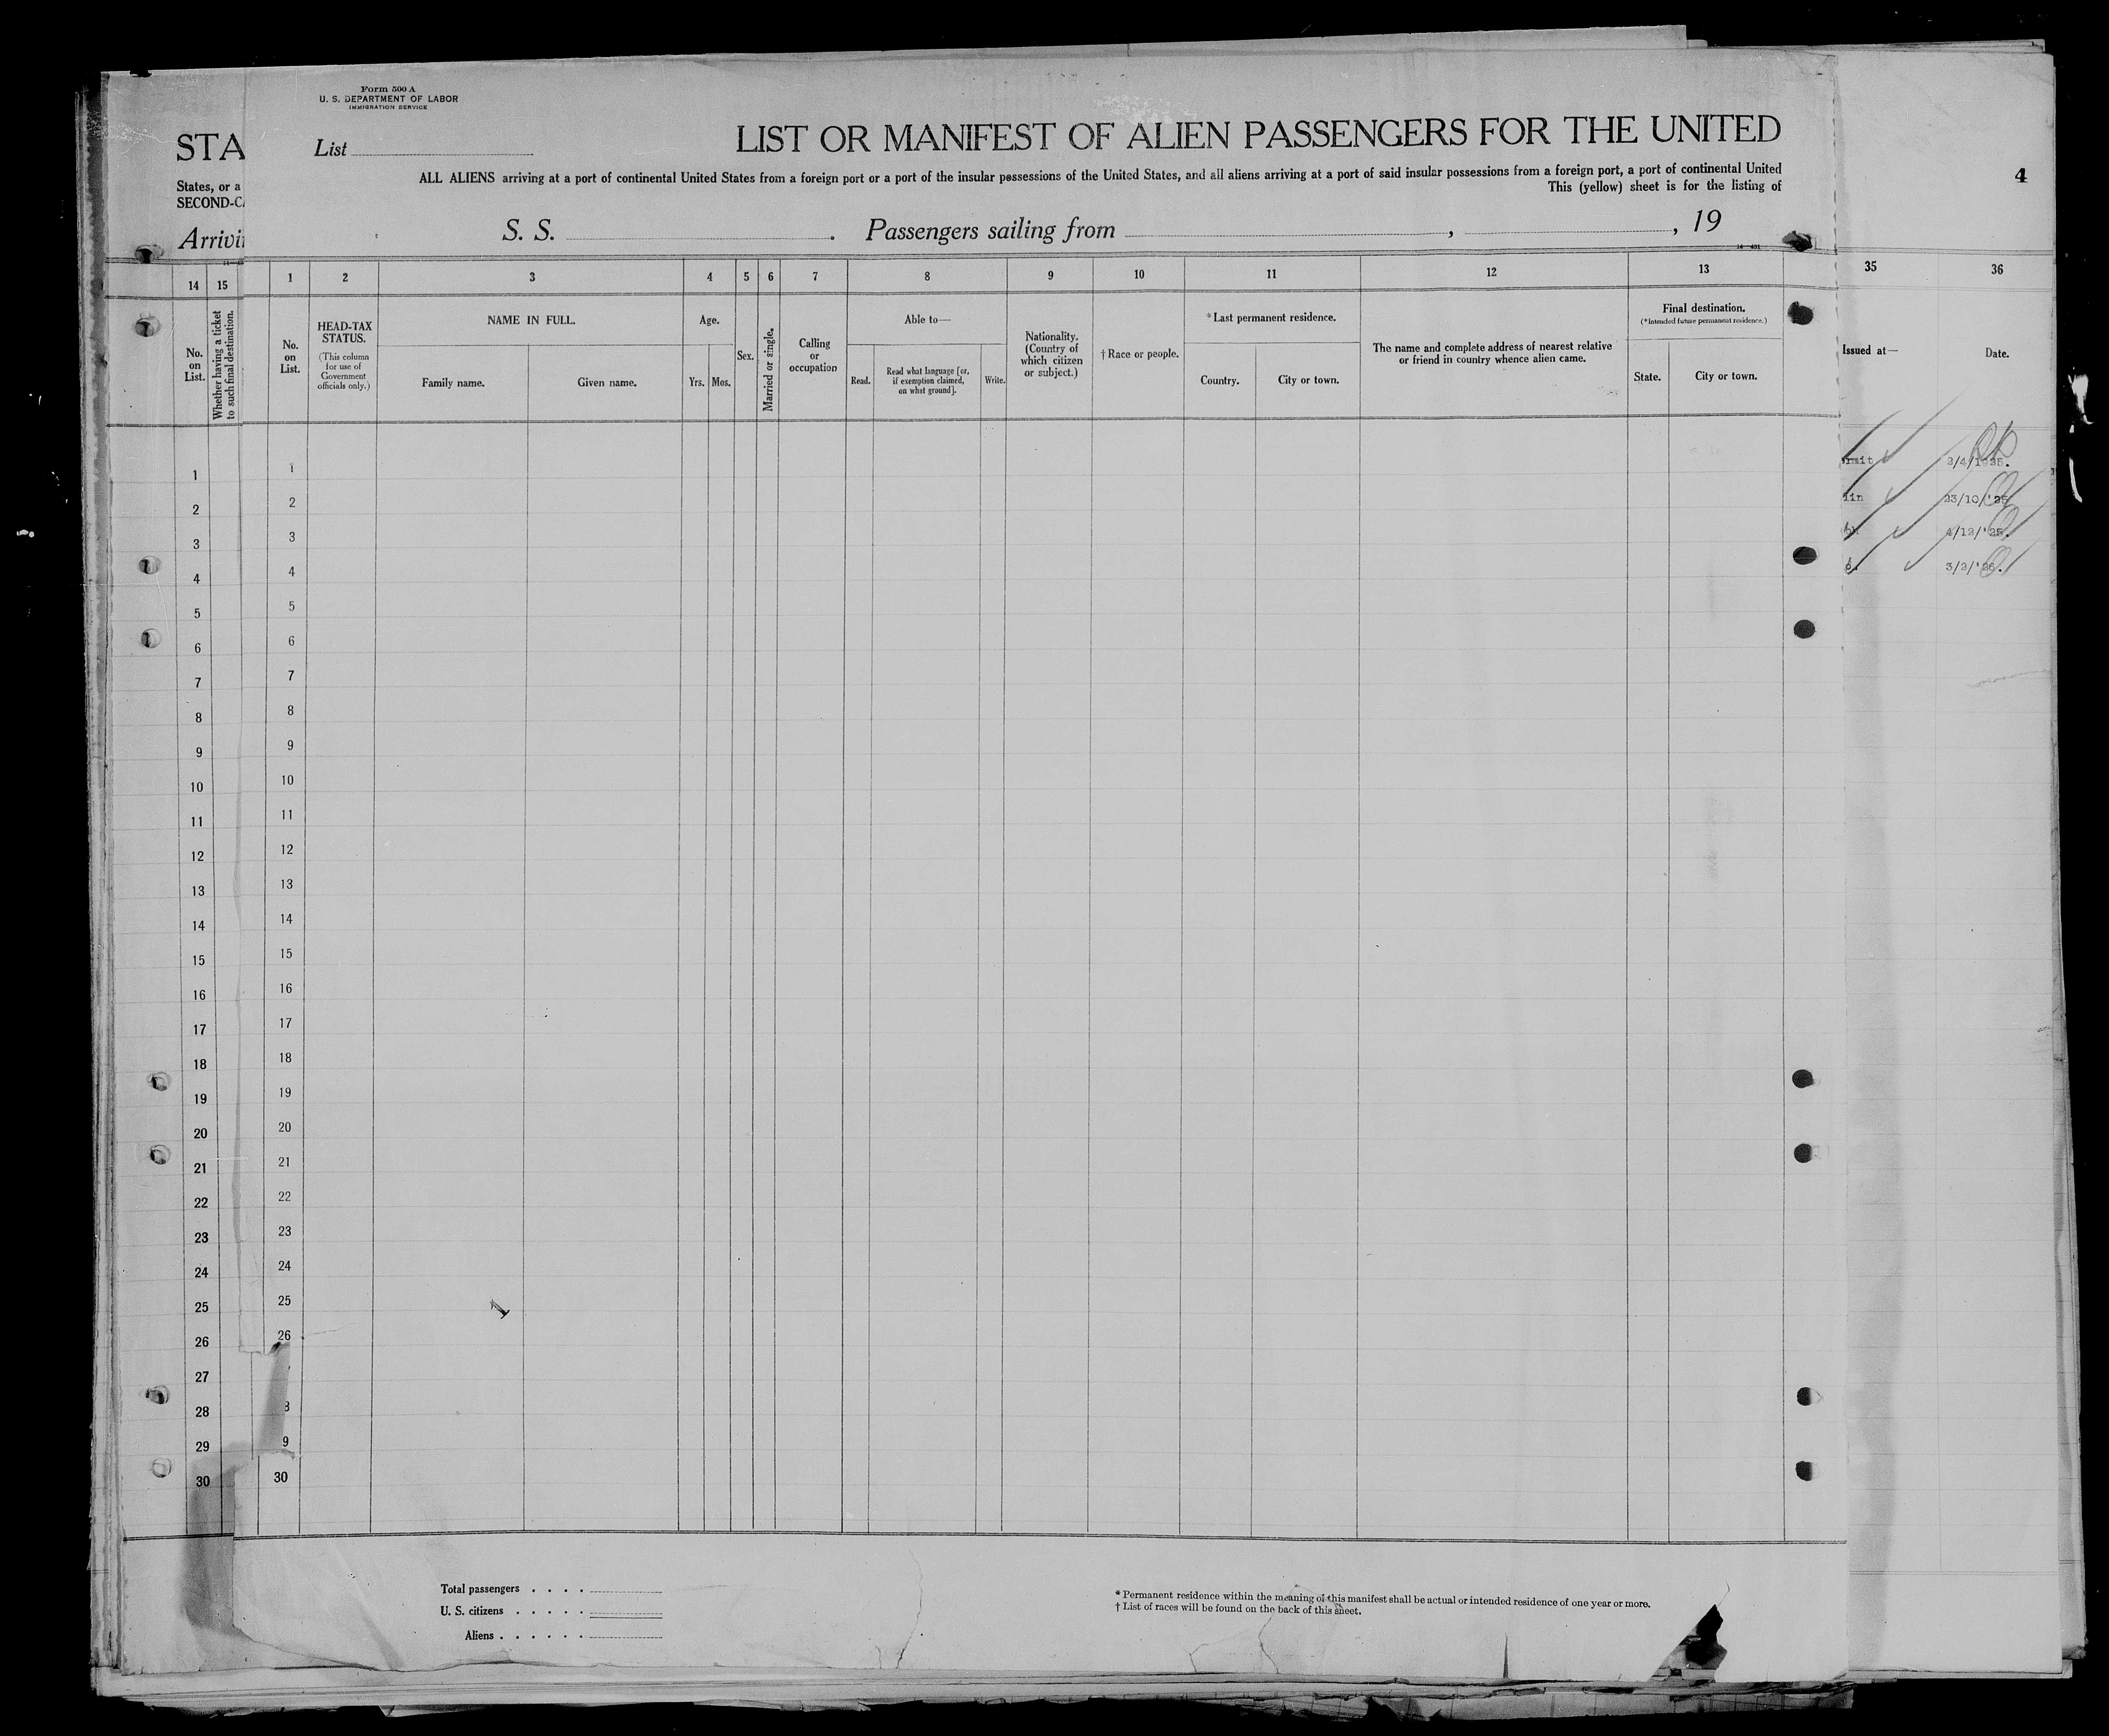 Form 500 A
U. S. DEPARTMENT OF LABOR
IMMIGRATION SERVICE
STA
List
LIST OR MANIFEST OF ALIEN PASSENGERS FOR THE UNITED
States, or a
SECOND-CA
ALL ALIENS arriving at a port of continental United States from a foreign port or a port of the insular possessions of the United States, and all aliens arriving at a port of said insular possessions from a foreign port, a port of continental United
This (yellow) sheet is for the listing of
4
Arrivi
S. S. . Passengers sailing from , , 19
14 15 1 2 3 4 5 6 7 8 9 10 11 12 13 35 36
No. on List.
Whether having a ticket to such final destination.
No. on List.
HEAD-TAX STATUS.
(This column for use of Government officials only.)
NAME IN FULL.
Family name. Given name.
Age.
Yrs. Mos.
Sex.
Married or single.
Calling or occupation
Able to—
Read. Read what language [or, if exemption claimed, on what ground]. Write.
Nationality. (Country of which citizen or subject.)
† Race or people.
* Last permanent residence.
Country. City or town.
The name and complete address of nearest relative or friend in country whence alien came.
Final destination.
(*Intended future permanent residence.)
State. City or town.
Issued at—
Date.
1 1 rmit
2 2 lin 23/10/'25
3 3 4/12/'25.
4 4 3/2/'26.
5 5
6 6
7 7
8 8
9 9
10 10
11 11
12 12
13 13
14 14
15 15
16 16
17 17
18 18
19 19
20 20
21 21
22 22
23 23
24 24
25 25
26 26
27
28 8
29 9
30 30
Total passengers . . . .
U. S. citizens . . . . .
Aliens . . . . . .
* Permanent residence within the meaning of this manifest shall be actual or intended residence of one year or more.
† List of races will be found on the back of this sheet.